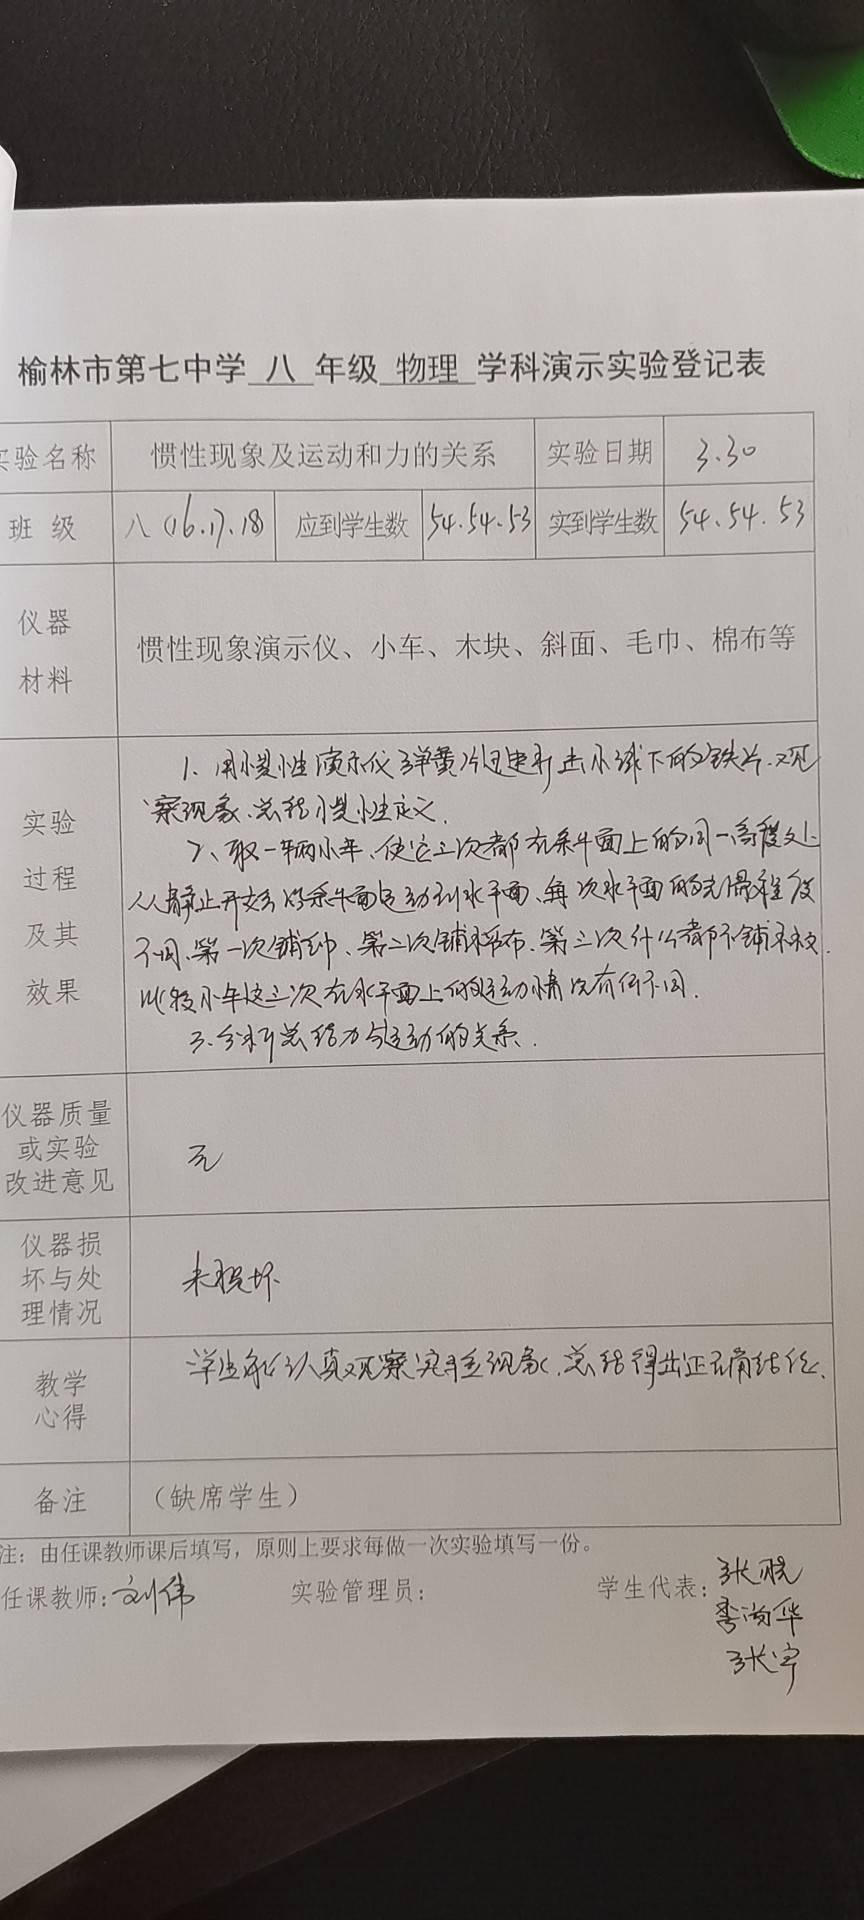 榆林市第七中学 八 年级 物理 学科演示实验登记表
实验名称 惯性现象及运动和力的关系 实验日期 3.30
班 级 八(16.17.18) 应到学生数 54.54.53 实到学生数 54.54.53
仪器
材料
惯性现象演示仪、小车、木块、斜面、毛巾、棉布等
实验
过程
及其
效果
1、用惯性演示仪弹簧片迅速打击小球下的铁片.观
察现象、总结惯性定义.
2、取一辆小车、使它三次都在斜面上的同一高度处
从静止开始沿斜面运动到水平面、每次水平面的光滑程度
不同、第一次铺、第二次铺棉布、第三次什么都不铺木板.
比较小车这三次在水平面上的运动情况有何不同.
3.分析总结力与运动的关系.
仪器质量
或实验
改进意见
无
仪器损
坏与处
理情况
未损坏
教学
心得
学生能认真观察实验现象、总结得出正确结论、
备注 （缺席学生）
注：由任课教师课后填写，原则上要求每做一次实验填写一份。
任课教师：刘伟 实验管理员： 学生代表：张
李华
张宇